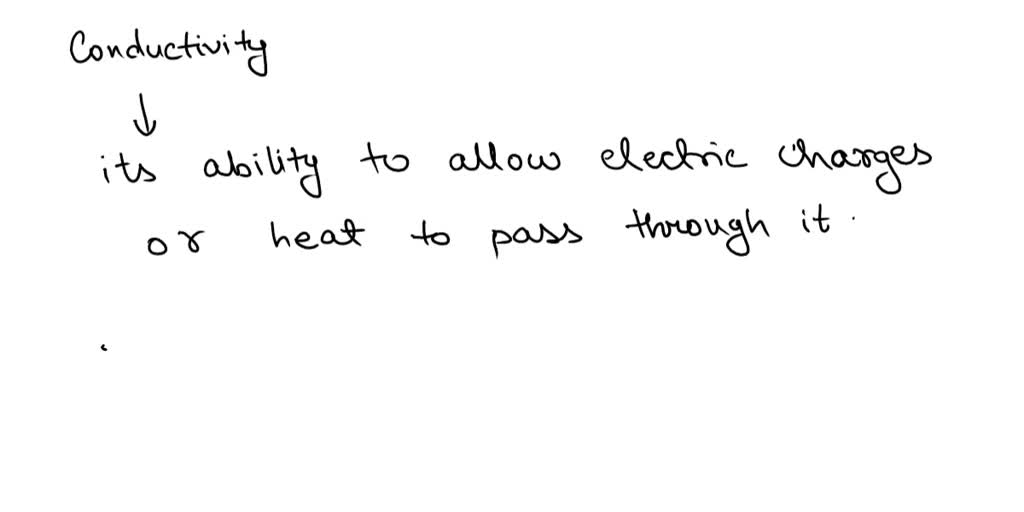 Conductivity
↓
its ability to allow electric charges
or heat to pass through it.